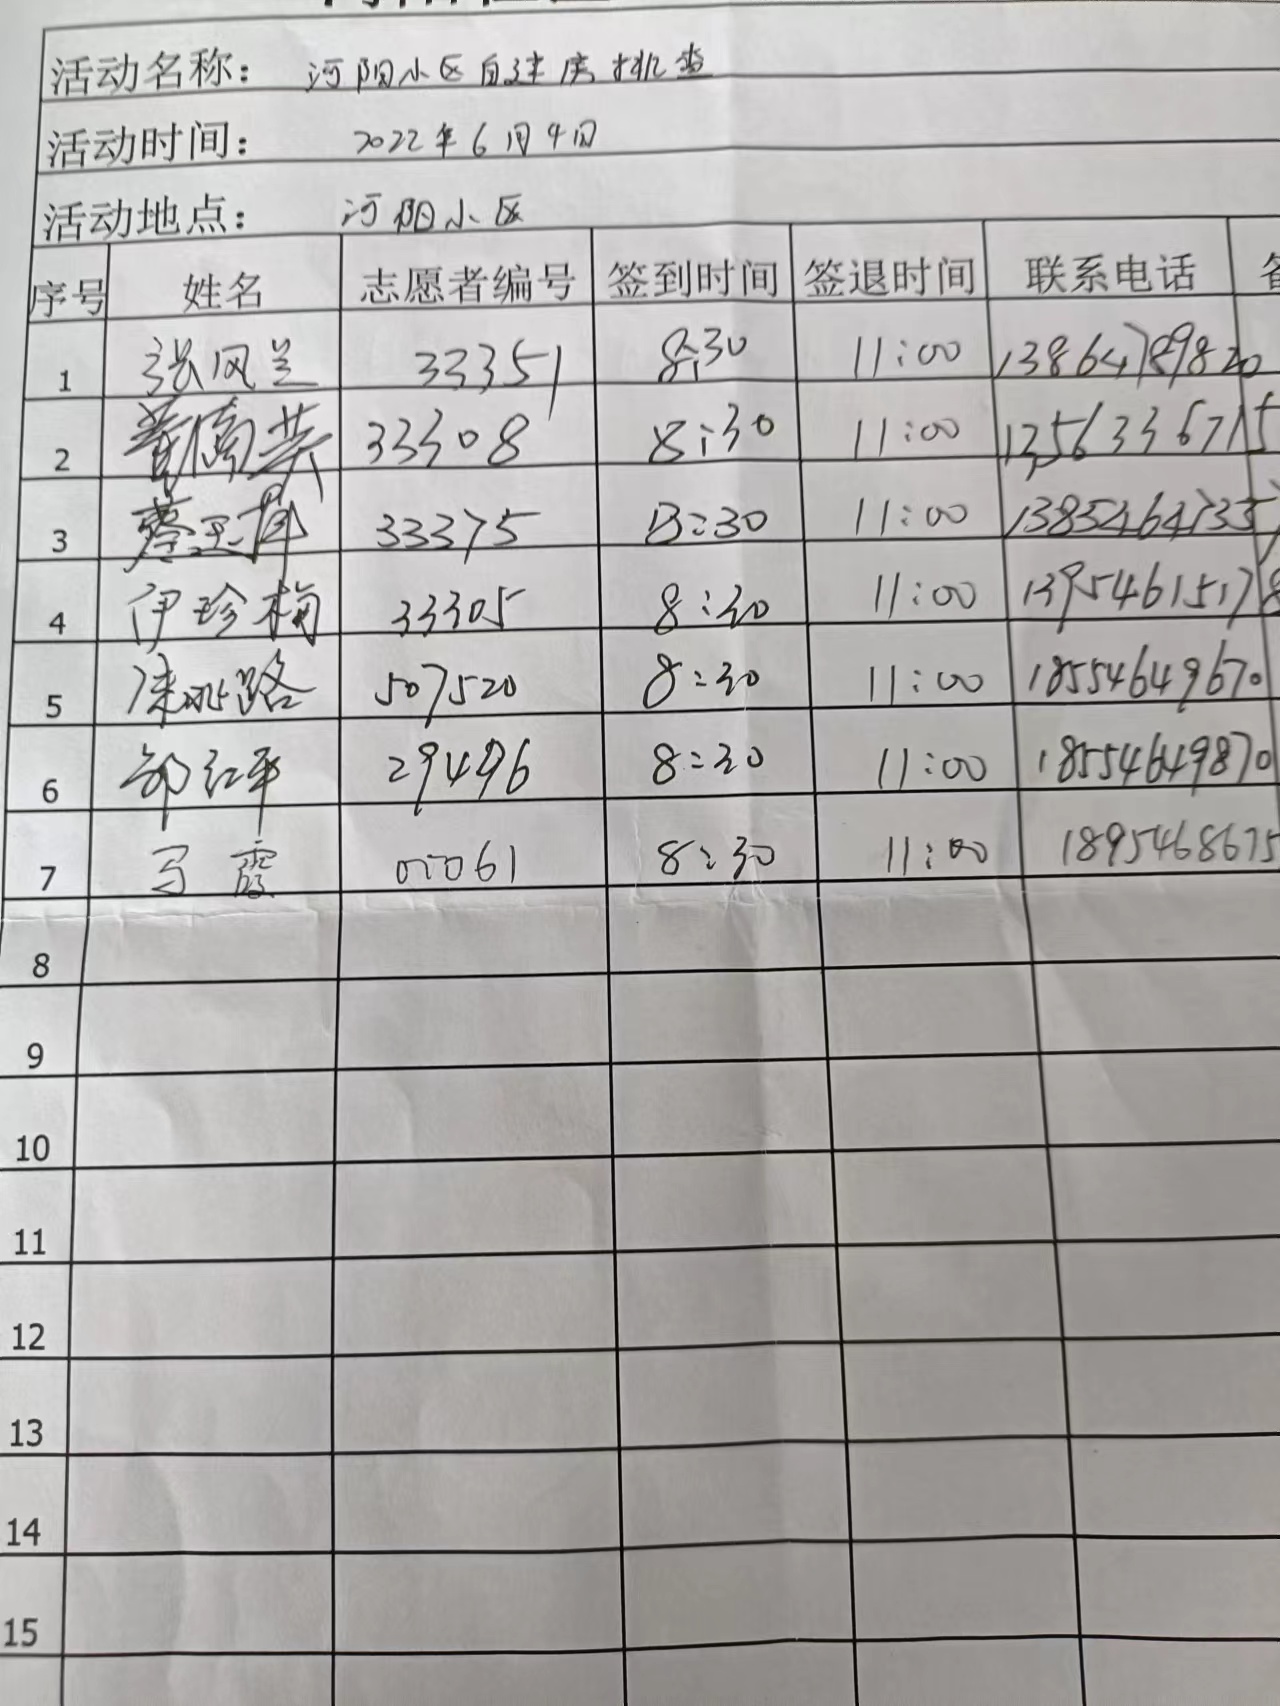 活动名称： 河阳小区自建房排查
活动时间： 2022年6月4日
活动地点： 河阳小区
序号 姓名 志愿者编号 签到时间 签退时间 联系电话
1 张风兰 33351 8:30 11:00 13864789820
2 33308 8:30 11:00
3 33375 8:30 11:00
4 伊珍梅 33305 8:30 11:00 13954615178
5 507520 8:30 11:00 18554649670
6 邹红平 29496 8:30 11:00 18554649870
7 马霞 00061 8:30 11:00 1895468675
8
9
10
11
12
13
14
15